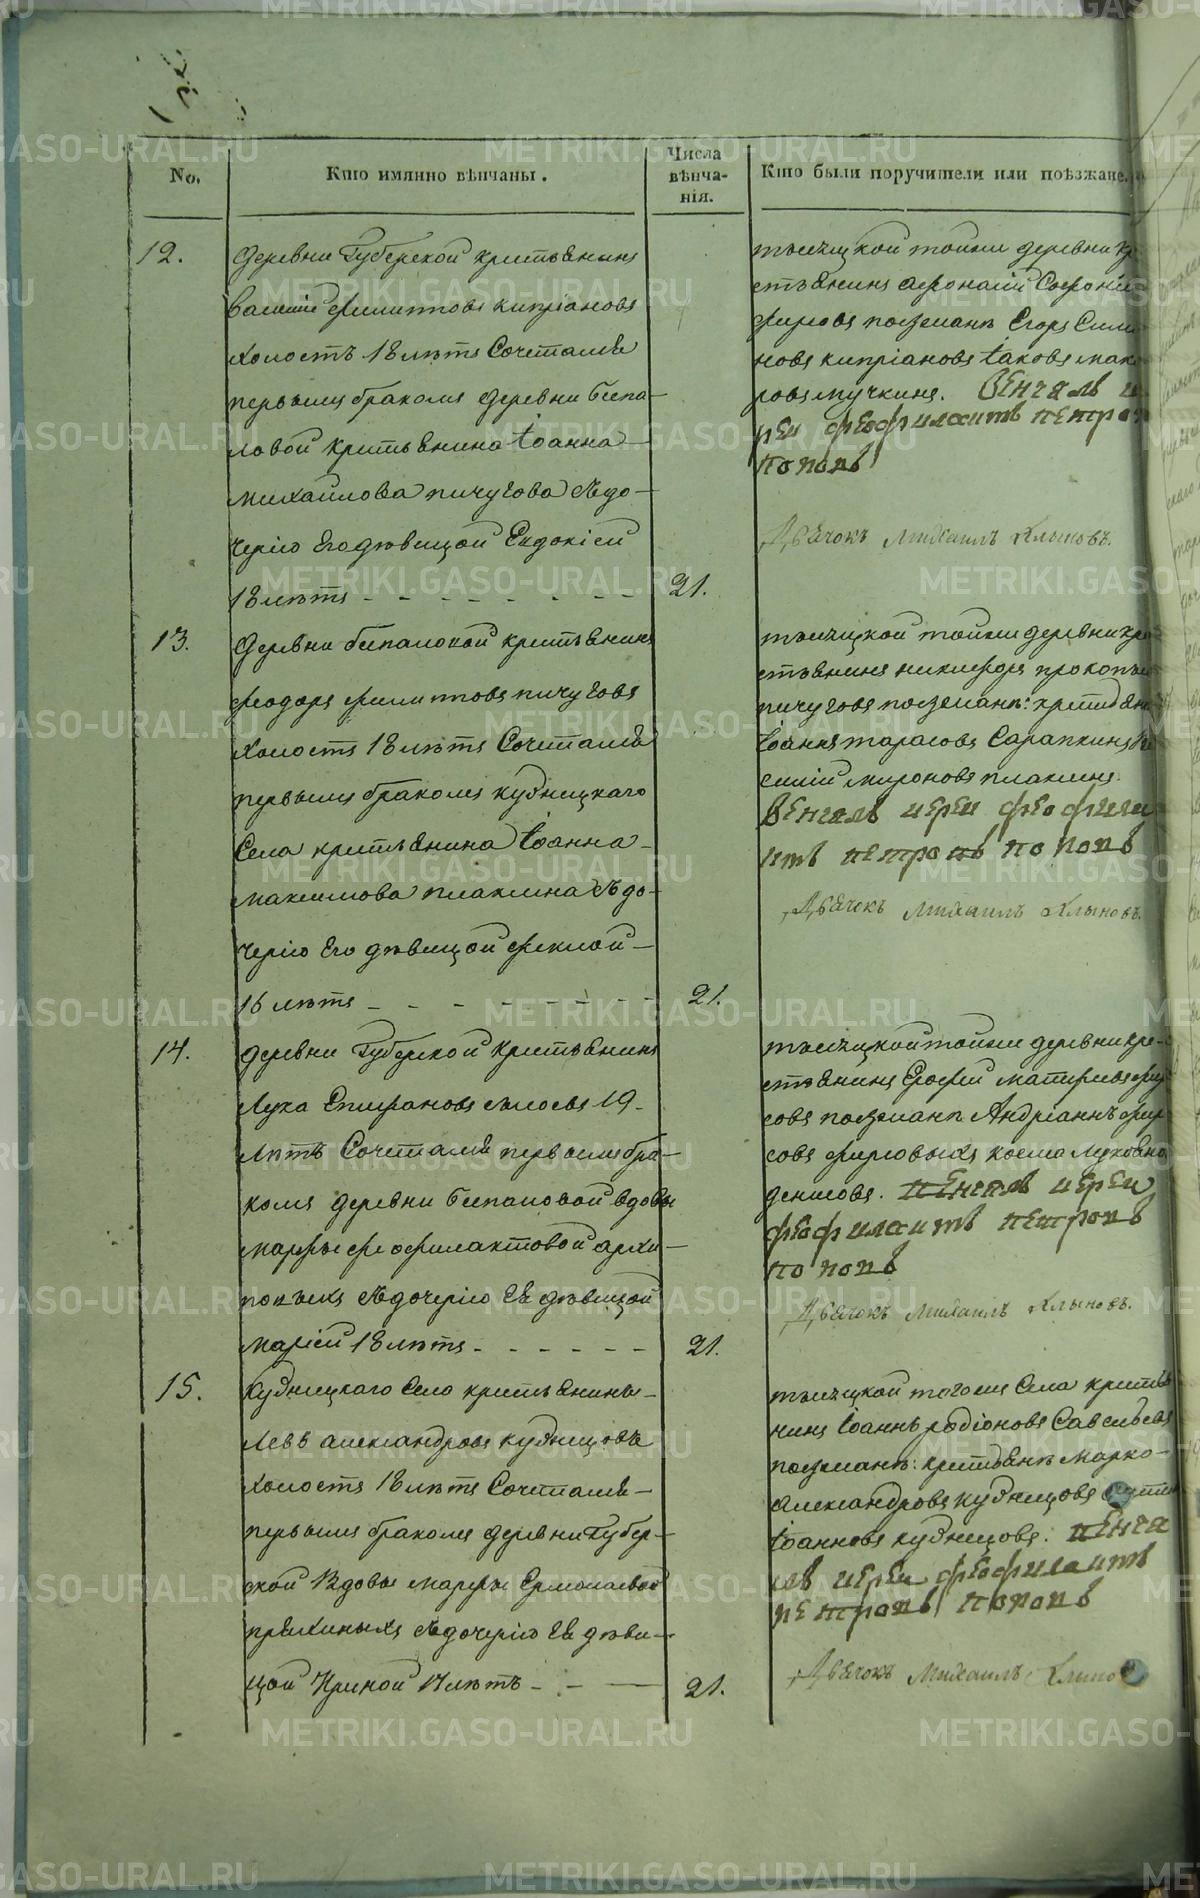 No.
Кто имянно вѣнчаны.
Числа
вѣнча-
нія.
Кто были поручители или поѣзжане.
12.
деревни Губерской крестьянинъ
филиповъ кипріановъ
холостъ 18 лѣтъ Сочетался
первымъ бракомъ деревни беспа-
ловой крестьянина Іоанна
михайлова пичугова съ до-
черію Его дѣвицой Евдокіей
18 лѣтъ
21.
тысяцкой тойже деревни кре-
стьянинъ Софоніи
поѣзжанъ Егоръ
новъ кипріановъ Іаковъ
Венчалъ
рей феофилактъ петровъ
поповъ
Дьячокъ Михаилъ Клыковъ.
13.
деревни беспаловой крестьянинъ
феодоръ филиповъ пичуговъ
холостъ 18 лѣтъ Сочетался
первымъ бракомъ кудницкаго
Села крестьянина Іоанна
максимова плаксина съ до-
черію Его дѣвицой феклой
16 лѣтъ
21.
тысяцкой тойже деревни кре
стьянинъ никифоръ прокопье
пичуговъ поѣзжанъ: крестьяне
Іоаннъ тарасовъ Сарапкинъ
мироновъ плаксинъ.
Венчалъ иереи феофила
ктъ петровъ поповъ
Дьячокъ Михаилъ Клыковъ.
14.
деревни Губерской крестьянинъ
Лука Епифановъ 19
лѣтъ Сочетался первымъ бра-
комъ деревни беспаловой вдовы
марфы феофилактовой архи-
повыхъ съ дочерію Ея дѣвицой
маріей 18 лѣтъ
21.
тысяцкой тойже деревни кре-
стьянинъ Ерофей
совъ поѣзжанъ Андріанъ фир
совъ фирсовыхъ косма
денисовъ. Венчалъ иереи
феофилактъ петровъ
поповъ
Дьячокъ Михаилъ Клыковъ.
15.
кудницкаго Села крестьянинъ
Левъ александровъ кудницовъ
холостъ 18 лѣтъ Сочетался
первымъ бракомъ деревни Губер-
ской Вдовы марфы Ермолаевой
съ дочерію Ея дѣви-
цой Ириной 17 лѣтъ
21.
тысяцкой тогоже Села крестья
нинъ Іоаннъ родіоновъ Савельевъ
поѣзжанъ: крестьянъ марко
александровъ кудницовъ
Іоанновъ кудницовъ. Венча
лъ иереи феофилактъ
петровъ поповъ
Дьячокъ Михаилъ Клыков
METRIKI.GASO-URAL.RU